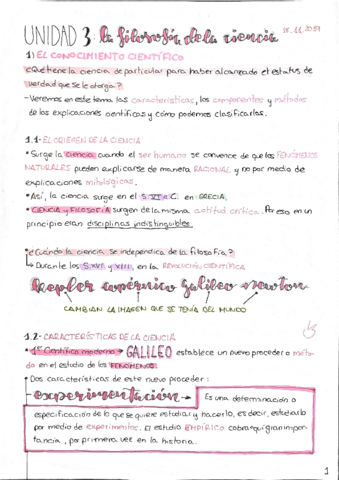 UNIDAD 3: la filosofía de la ciencia
1) EL CONOCIMIENTO CIENTÍFICO
¿Qué tiene la ciencia de particular para haber alcanzado el estatus de
verdad que se le otorga?
-Veremos en este tema las características, los componentes y métodos
de las explicaciones científicas y cómo podemos clasificarlas.
1.1-EL ORIGEN DE LA CIENCIA
• Surge la ciencia cuando el ser humano se convence de que los FENÓMENOS
NATURALES pueden explicarse de manera RACIONAL y no por medio de
explicaciones mitológicas.
• Así, la ciencia surge en el S.VI a.C. en GRECIA.
• CIENCIA y FILOSOFIA surgen de la misma actitud crítica. Por eso en un
principio eran disciplinas indistinguibles.
• ¿Cuándo la ciencia se independica de la filosofía?
↳ Durante los S.XVI y XVII, en la REVOLUCIÓN CIENTÍFICA
Kepler copérnico galileo newton
CAMBIAN LA IMAGEN QUE SE TENÍA DEL MUNDO
1.2-CARACTERÍSTICAS DE LA CIENCIA
• 1er Científico moderno → GALILEO establece un nuevo proceder o méto-
do en el estudio de los FENÓMENOS.
• Dos características de este nuevo proceder:
-experimentación→ Es una determinación o
especificación de lo que se quiere estudiar y hacerlo, es decir, estudiarlo
por medio de experimentos. El estudio EMPÍRICO cobra aquí gran impor-
tancia, por primera vez en la historia.
1